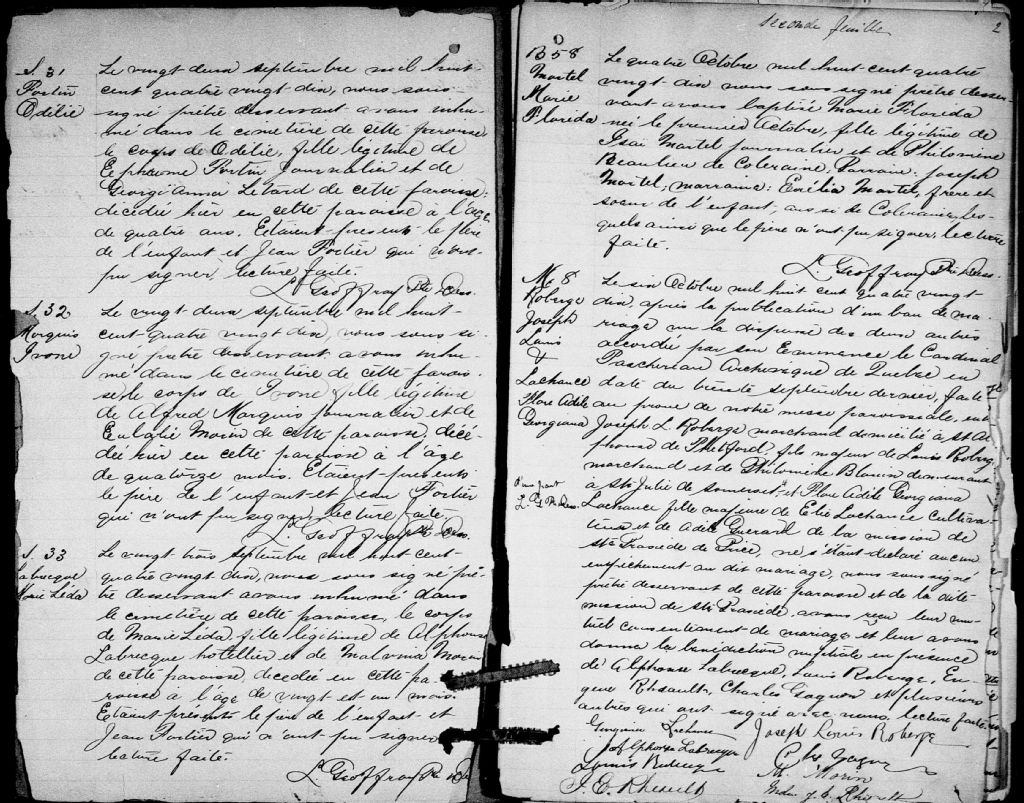 S. 31
Fortin
Odélie
Le vingt deux septembre mil huit-
cent quatre vingt dix, nous sous-
signé prêtre desservant avons inhu-
mé dans le cimetière de cette paroisse
le corps de Odélie, fille légitime de
Fortin journalier et de
Georgianna de cette paroisse;
décédée hier en cette paroisse à l'âge
de quatre ans. Etaient présents le père
de l'enfant et Jean Fortier qui n'ont
pu signer, lecture faite.
L. Geoffroy Ptre Dess.
S. 32
Marquis
Ivone
Le vingt deux septembre mil huit-
cent quatre vingt dix, nous sous si-
gné prêtre desservant avons inhu-
mé dans le cimetière de cette parois-
se le corps de Ivone fille légitime
de Alfred Marquis journalier et de
Eulalie Morin de cette paroisse, décé-
dée hier en cette paroisse à l'âge
de quatorze mois. Etaient présents
le père de l'enfant et Jean Fortier
qui n'ont pu signer, lecture faite.
L. Geoffroy Ptre Dess.
S. 33
Labrecque
Marie Léda
Le vingt trois septembre mil huit cent-
quatre vingt dix, nous sous signé prê-
tre desservant avons inhumé dans
le cimetière de cette paroisse, le corps
de Marie Léda, fille légitime de Alphonse
Labrecque hôtellier et de Malvina Morin
de cette paroisse, décédée en cette pa-
roisse à l'âge de vingt et un mois.
Etaient présents le père de l'enfant et
Jean Fortier qui n'ont pu signer
lecture faite.
L. Geoffroy Ptre Dess.
Seconde feuille
2
B 58
Martel
Marie
Florida
Le quatre Octobre mil huit cent quatre
vingt-dix nous sous signé prêtre desser-
vant avons baptisé Marie Florida
née le premier Octobre, fille légitime de
Isaï Martel journalier et de Philomène
Beaulieu de Coleraine, Parrain: Joseph
Martel; marraine: Emélia Martel, frère et
soeur de l'enfant, aussi de Coleraine, les-
quels ainsi que le père n'ont pu signer, lecture
faite.
L. Geoffroy Ptre Dess.
M. 8
Roberge
Joseph
Louis
&
Lachance
Flore Adèle
Georgiana
Le six Octobre mil huit cent quatre vingt-
dix, après la publication d'un ban de ma-
riage vu la dispense des deux autres
accordée par son Eminence le Cardinal
Taschereau Archevêque de Québec en
date du septembre dernier, faite
au prône de notre messe paroissiale, entre
Joseph L. Roberge marchand domicilié à St Al-
phonse de Thetford, fils majeur de Louis Roberge
marchand et de Philomène Blouin demeurant
à Ste Julie de Somerset d'une part L. G. P. Dess. et Flore Adèle Georgiana
Lachance fille majeure de Elie Lachance cultiva-
teur et de Adèle Guérard de la mission de
Ste Praxède de Price, ne s'étant déclaré aucun
empêchement au dit mariage, nous soussigné
prêtre desservant de cette paroisse et de la dite
mission de Ste Praxède, avons reçu leur mu-
tuel consentement de mariage et leur avons
donné la bénédiction nuptiale en présence
de Alphonse Labrecque, Louis Roberge, Eu-
gène Rheault, Charles Gagnon et plusieurs
autres qui ont signé avec nous, lecture faite.
Georgiana Lachance
Joseph Louis Roberge
J. Alphonse Labrecque
Chs Gagnon
Louis Roberge
M. Morin
J. E. Rheault